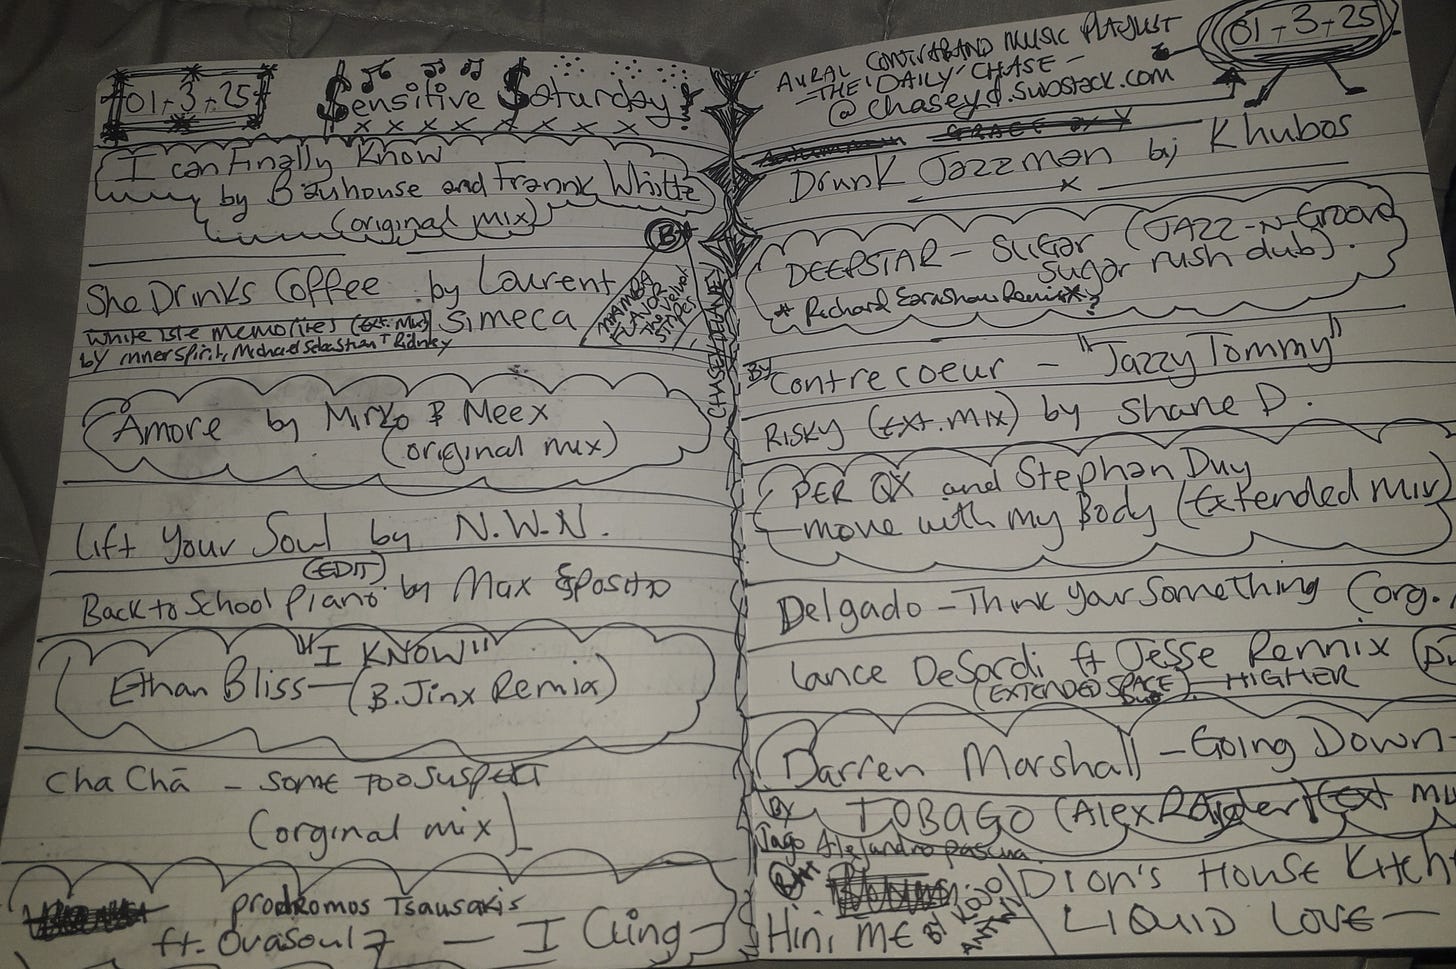 01-3-25
Sensitive Saturday!
x x x x x x x x x
I can Finally Know
by Bauhouse and Frannk Whitte
(original mix)
She Drinks Coffee by Laurent
Simeca
White Isle Memo(ries) (Ext. Mix)
by innerspirit, Michael Sebastian T Ridney
B
MAMBA
FLAVOR
The Velvet
STARES
Amore by Mirko & Meex
(original mix)
Lift Your Soul by N.W.N.
(EDIT)
Back to School Piano by Max Esposito
"I KNOW"
Ethan Bliss — (B. Jinx Remix)
Cha Chā - Some Too Suspekt
(orginal mix)
prodromos Tsausakis
ft. Ovasoul7 — I Cling
CHASEYDELANEY
AURAL CONTRABAND MUSIC PLAYLIST
-THE 'DAILY' CHASE-
@chaseyd.substack.com
01-3-25
Drunk Jazzman by Khubos
x
DEEPSTAR - Sugar (JAZZ-N-Groove
Sugar rush dub).
* Richard Earnshaw Remix*?
By Contrecoeur - "Jazzy Tommy"
Risky (Ext. Mix) by Shane D.
PER QX and Stephan Duy
-move with my Body (Extended Mix)
Delgado - Think Your Something (org.
Lance DeSardi ft Jesse Rennix
(EXTENDED SPACE Dub) - HIGHER
Darren Marshall - Going Down-
By TOBAGO (Alex Raider) (ext mix
Iago Alejandro Pascua
Hini ME
BY KOJO
Dion's House Kitch
LIQUID LOVE —